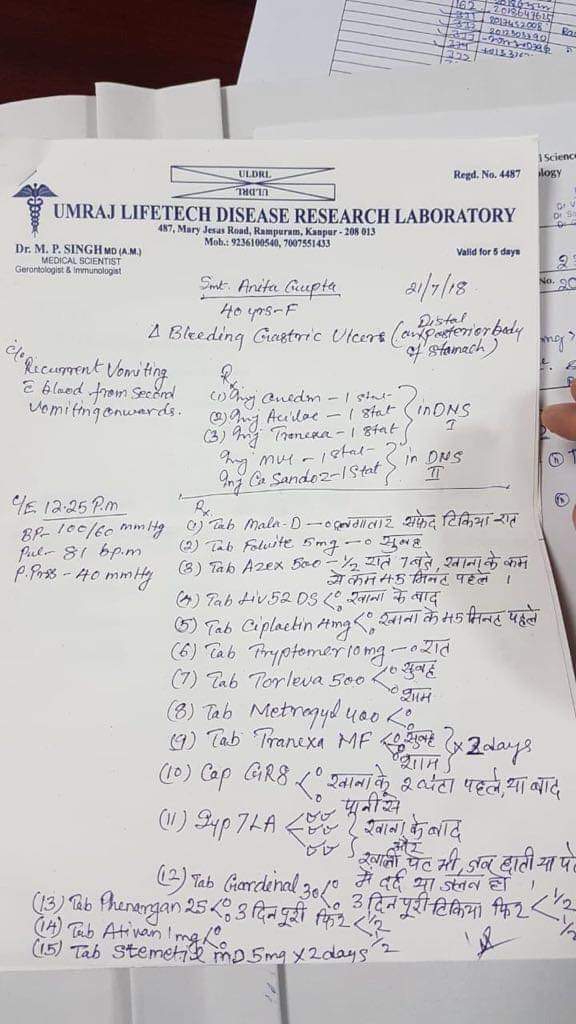 ULDRL
ULDRL
Regd. No. 4487
UMRAJ LIFETECH DISEASE RESEARCH LABORATORY
487, Mary Jesas Road, Rampuram, Kanpur - 208 013
Mob.: 9236100540, 7007551433
Dr. M. P. SINGH MD (A.M.)
MEDICAL SCIENTIST
Gerontologist & Immunologist
Valid for 5 days
Smt. Anita Gupta
21/7/18
40 yrs-F
Δ Bleeding Gastric Ulcers (Distal Posterior body of Stomach)
c/o
Recurrent Vomiting
c̄ blood from Second
Vomiting onwards.
Rx
(1) Inj - 1 Stat
(2) Inj Aciloc - 1 Stat
(3) Inj Tranexa - 1 Stat
in DNS I
Inj MVI - 1 Stat
Inj Ca Sandoz - 1 Stat
in DNS II
C/E 12.25 P.m
BP- 100/60 mmHg
Pul- 81 bpm
P.Prss - 40 mmHg
Rx
(1) Tab Mala-D - o लगातार सफेद टिकिया रात
(2) Tab Folvite 5mg - o सुबह
(3) Tab Azex 500 - 1/2 रात 7 बजे, खाना के कम
से कम 45 मिनट पहले ।
(4) Tab Liv 52 DS < खाना के बाद
(5) Tab Ciplactin 4mg < खाना के 45 मिनट पहले
(6) Tab Tryptomer 10mg - o रात
(7) Tab Torleva 500 < सुबह
शाम
(8) Tab Metrogyl 400 <
(9) Tab Tranexa MF < सुबह
शाम } x 2 days
(10) Cap GR8 < खाना के 2 घंटा पहले, या बाद
पानी से
(11) Syp 7LA < खाना के बाद
और
खाली पेट भी, जब छाती या पेट
में दर्द या जलन हो ।
(12) Tab Gardinal 30 < 3 दिन पूरी टिकिया फिर < 1/2 1/2
(13) Tab Phenargan 25 < 3 दिन पूरी फिर < 1/2 1/2
(14) Tab Ativan 1mg <
(15) Tab Stemetil MD 5mg x 2 days